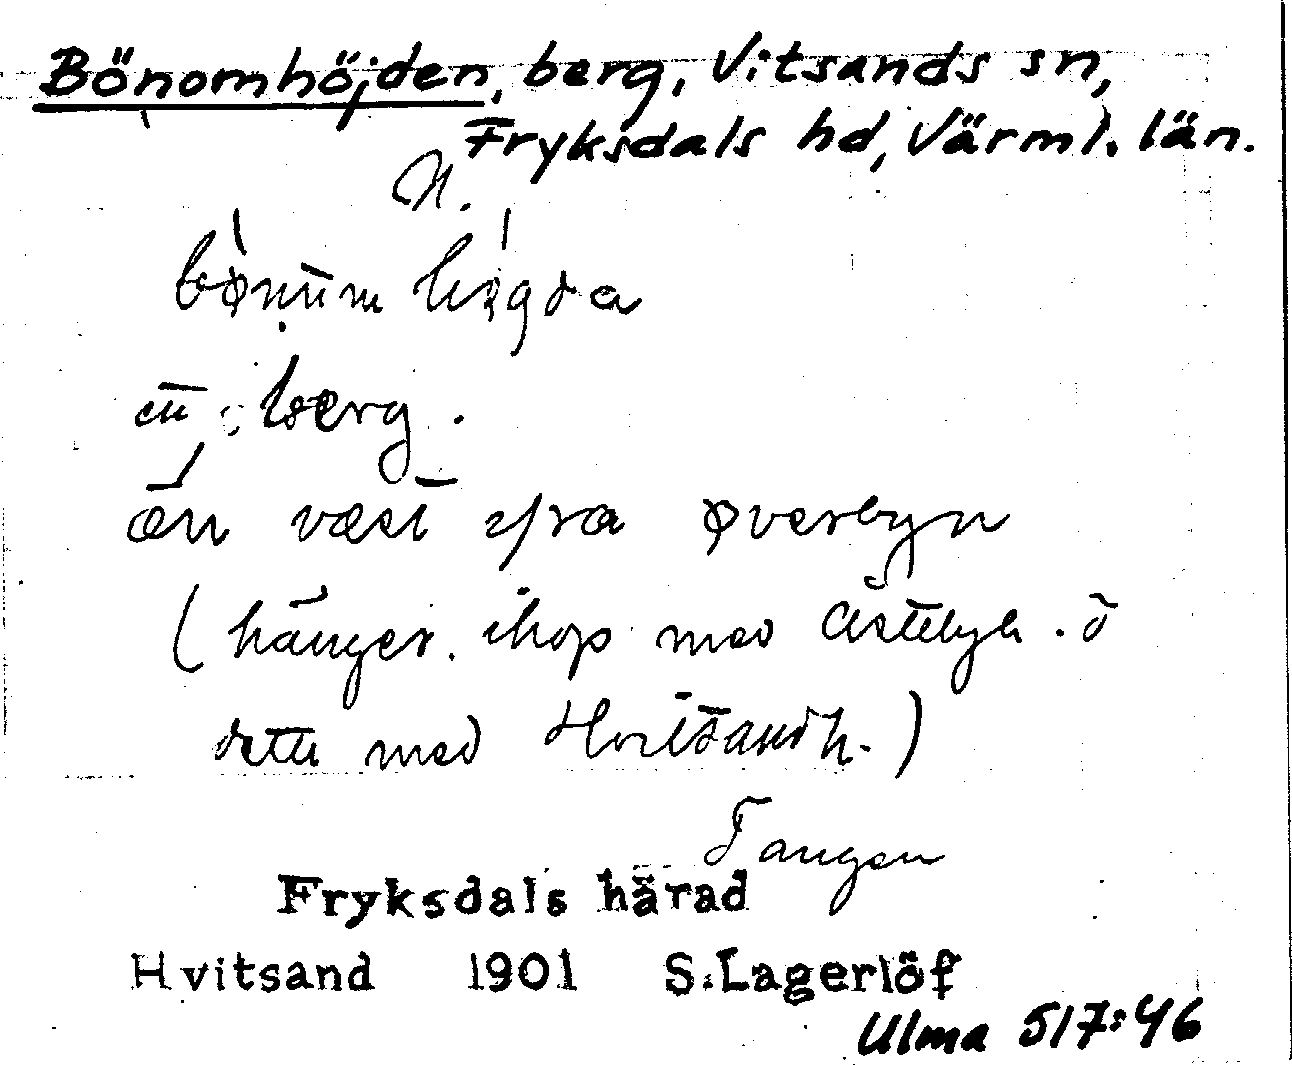 Bönomhöjden, berg, Vitsands sn,
Fryksdals hd, Värml. län.
N.
bønum høgda
en berg.
än væst ifra øverbyn
(hänger ihop med Åstebyh. å
dette med Hvitsandh.)
Tangen
Fryksdals härad
Hvitsand 1901 S. Lagerlöf
Ulma 517:46